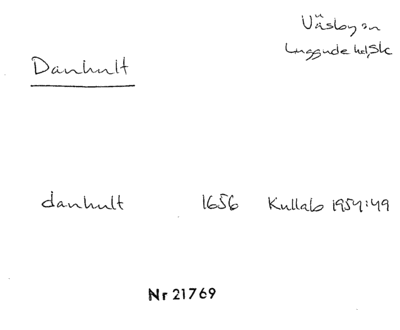 Väsby sn
Luggude hd, Sk
Danhult
danhult 1656 Kullab 1954:49
Nr 21769